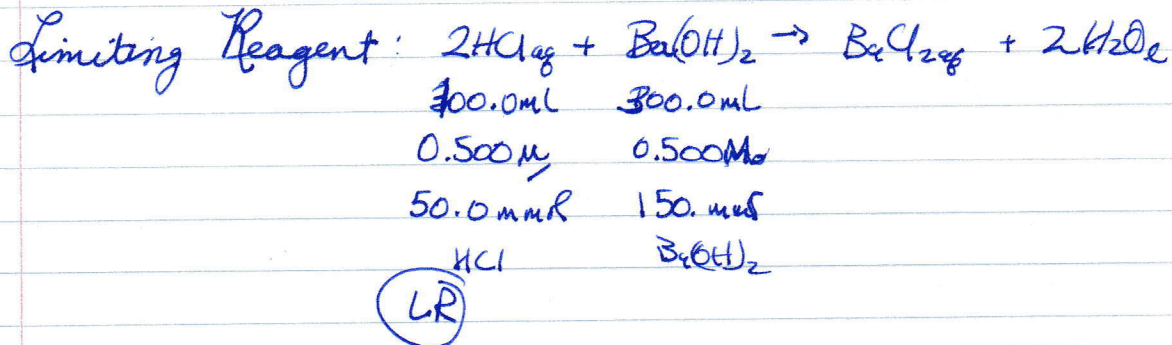 Limiting Reagent: 2HClaq + Ba(OH)₂ → BaCl₂aq + 2H₂Oℓ
100.0mL 300.0mL
0.500M 0.500M
50.0 mmol 150. mmol
HCl Ba(OH)₂
LR